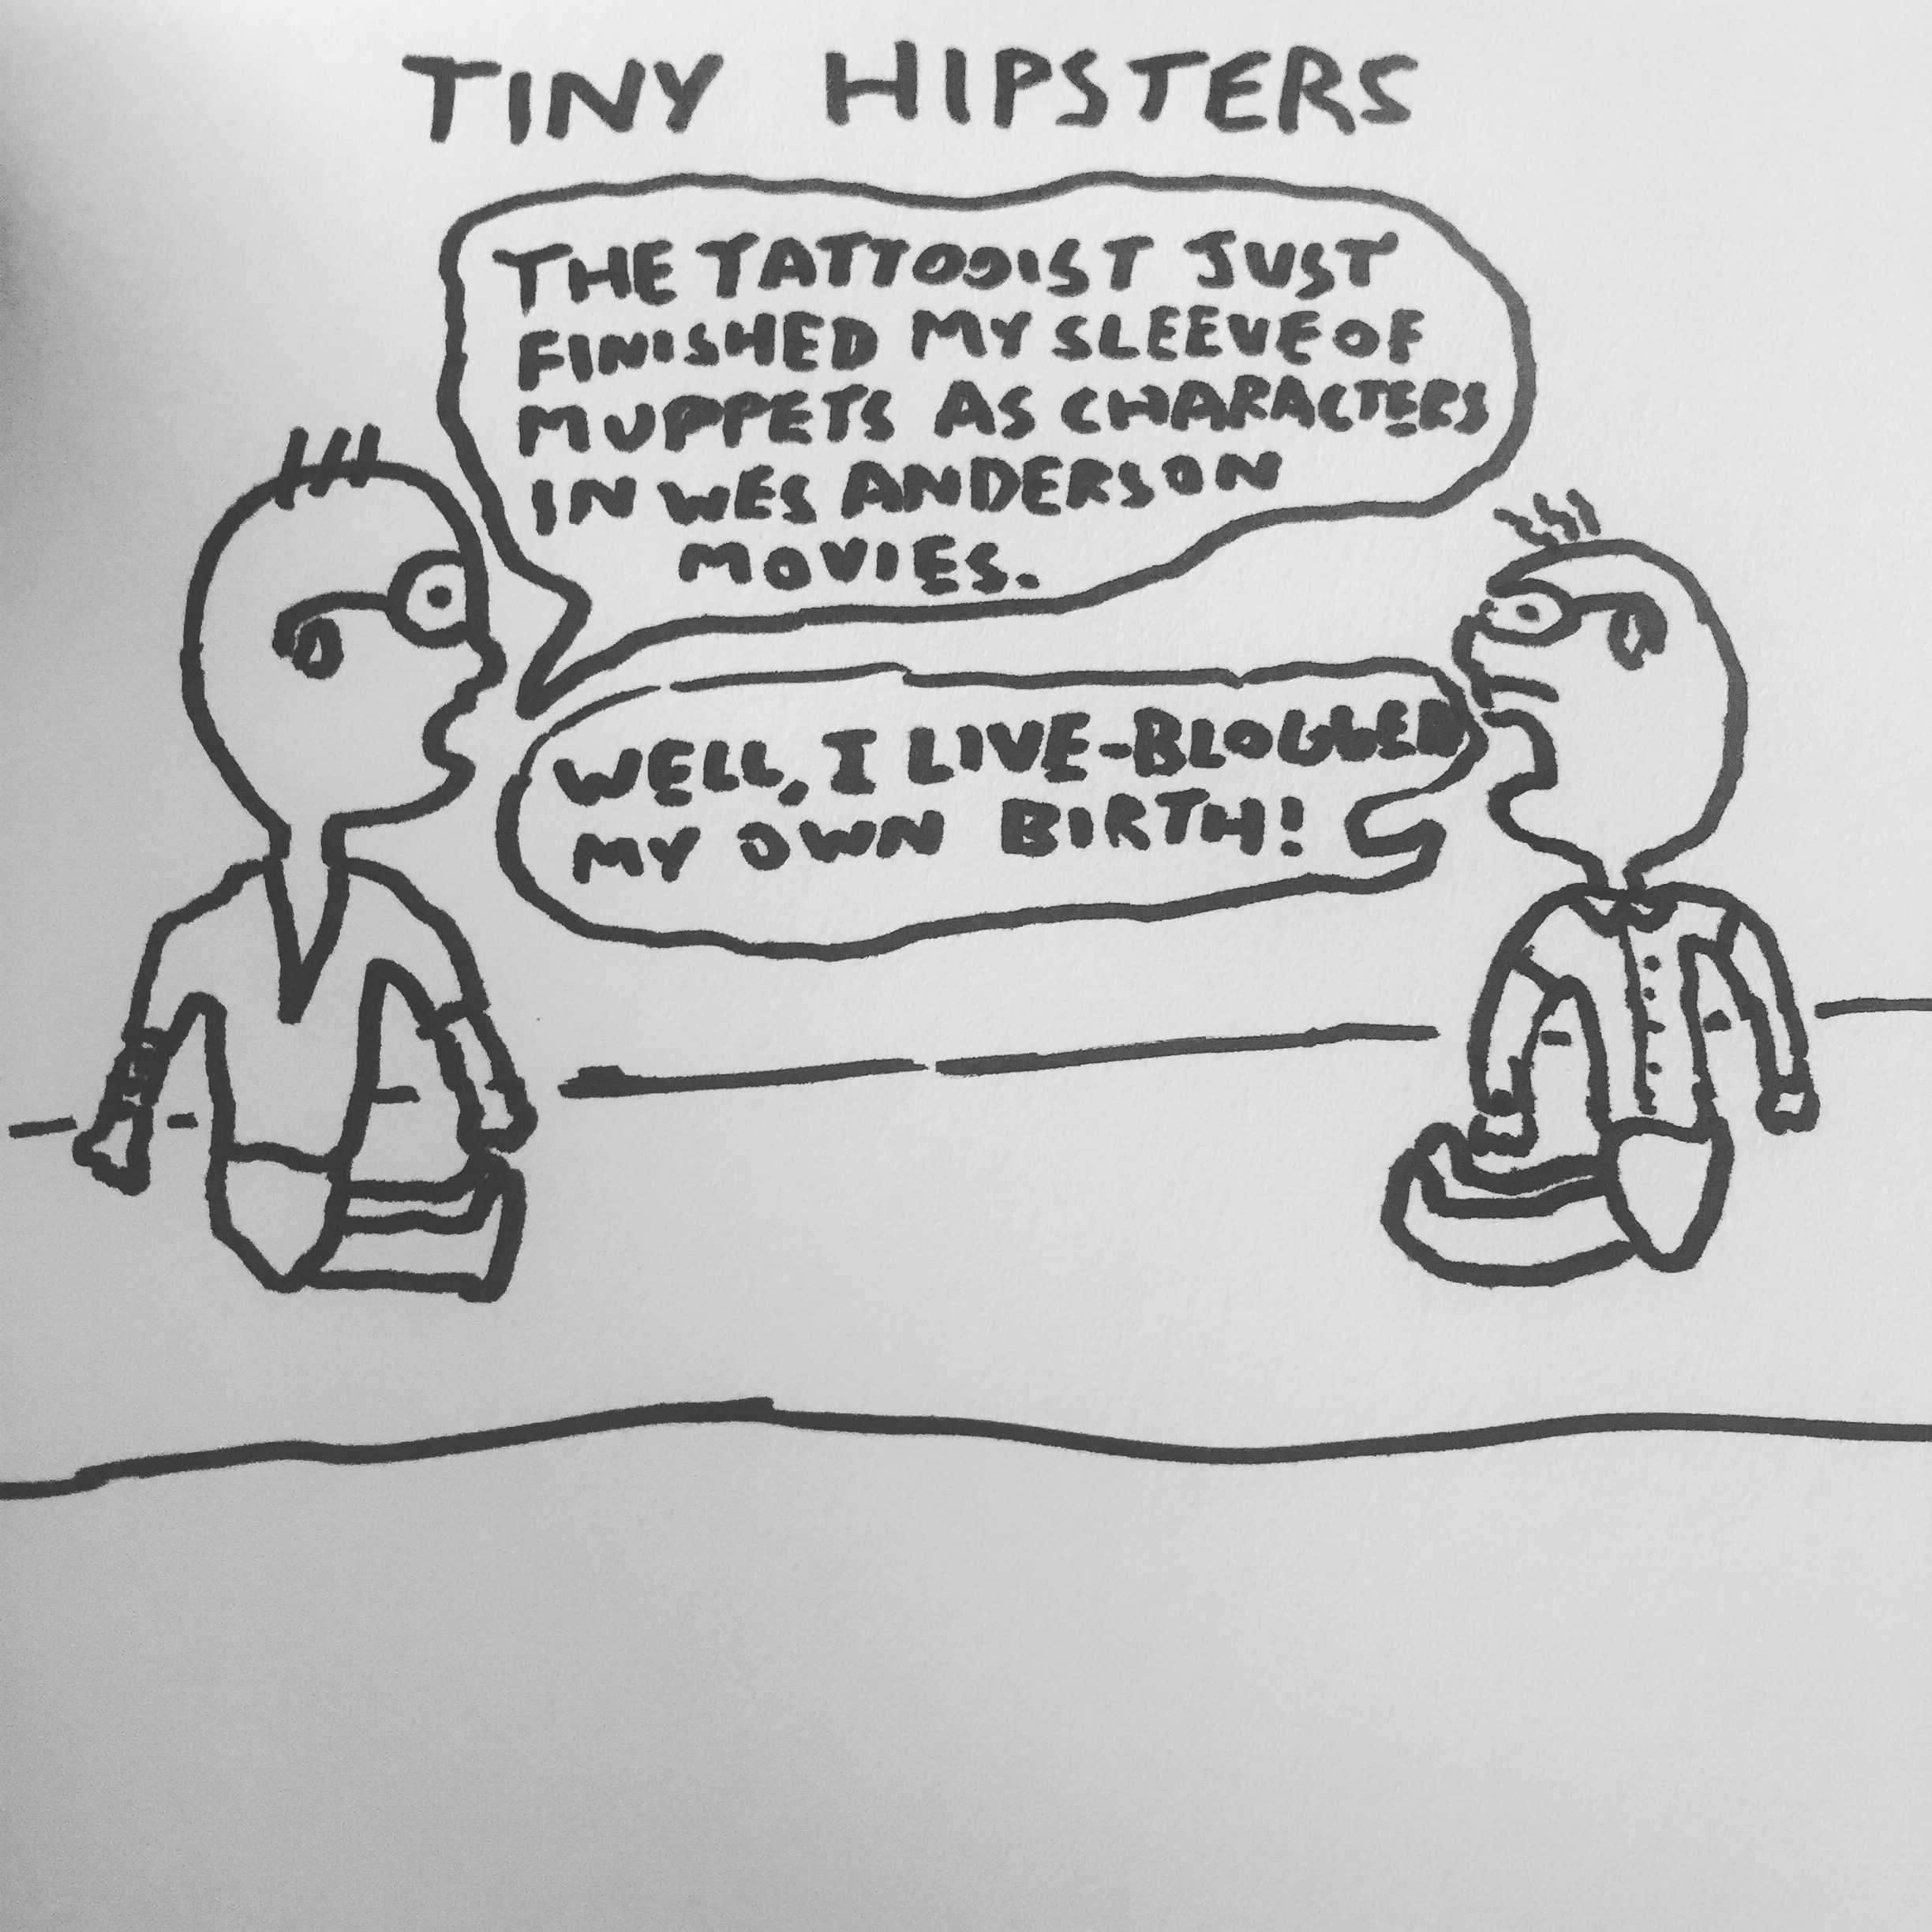 TINY HIPSTERS
THE TATTOOIST JUST
FINISHED MY SLEEVE OF
MUPPETS AS CHARACTERS
IN WES ANDERSON
MOVIES.
WELL, I LIVE-BLOGGED
MY OWN BIRTH!